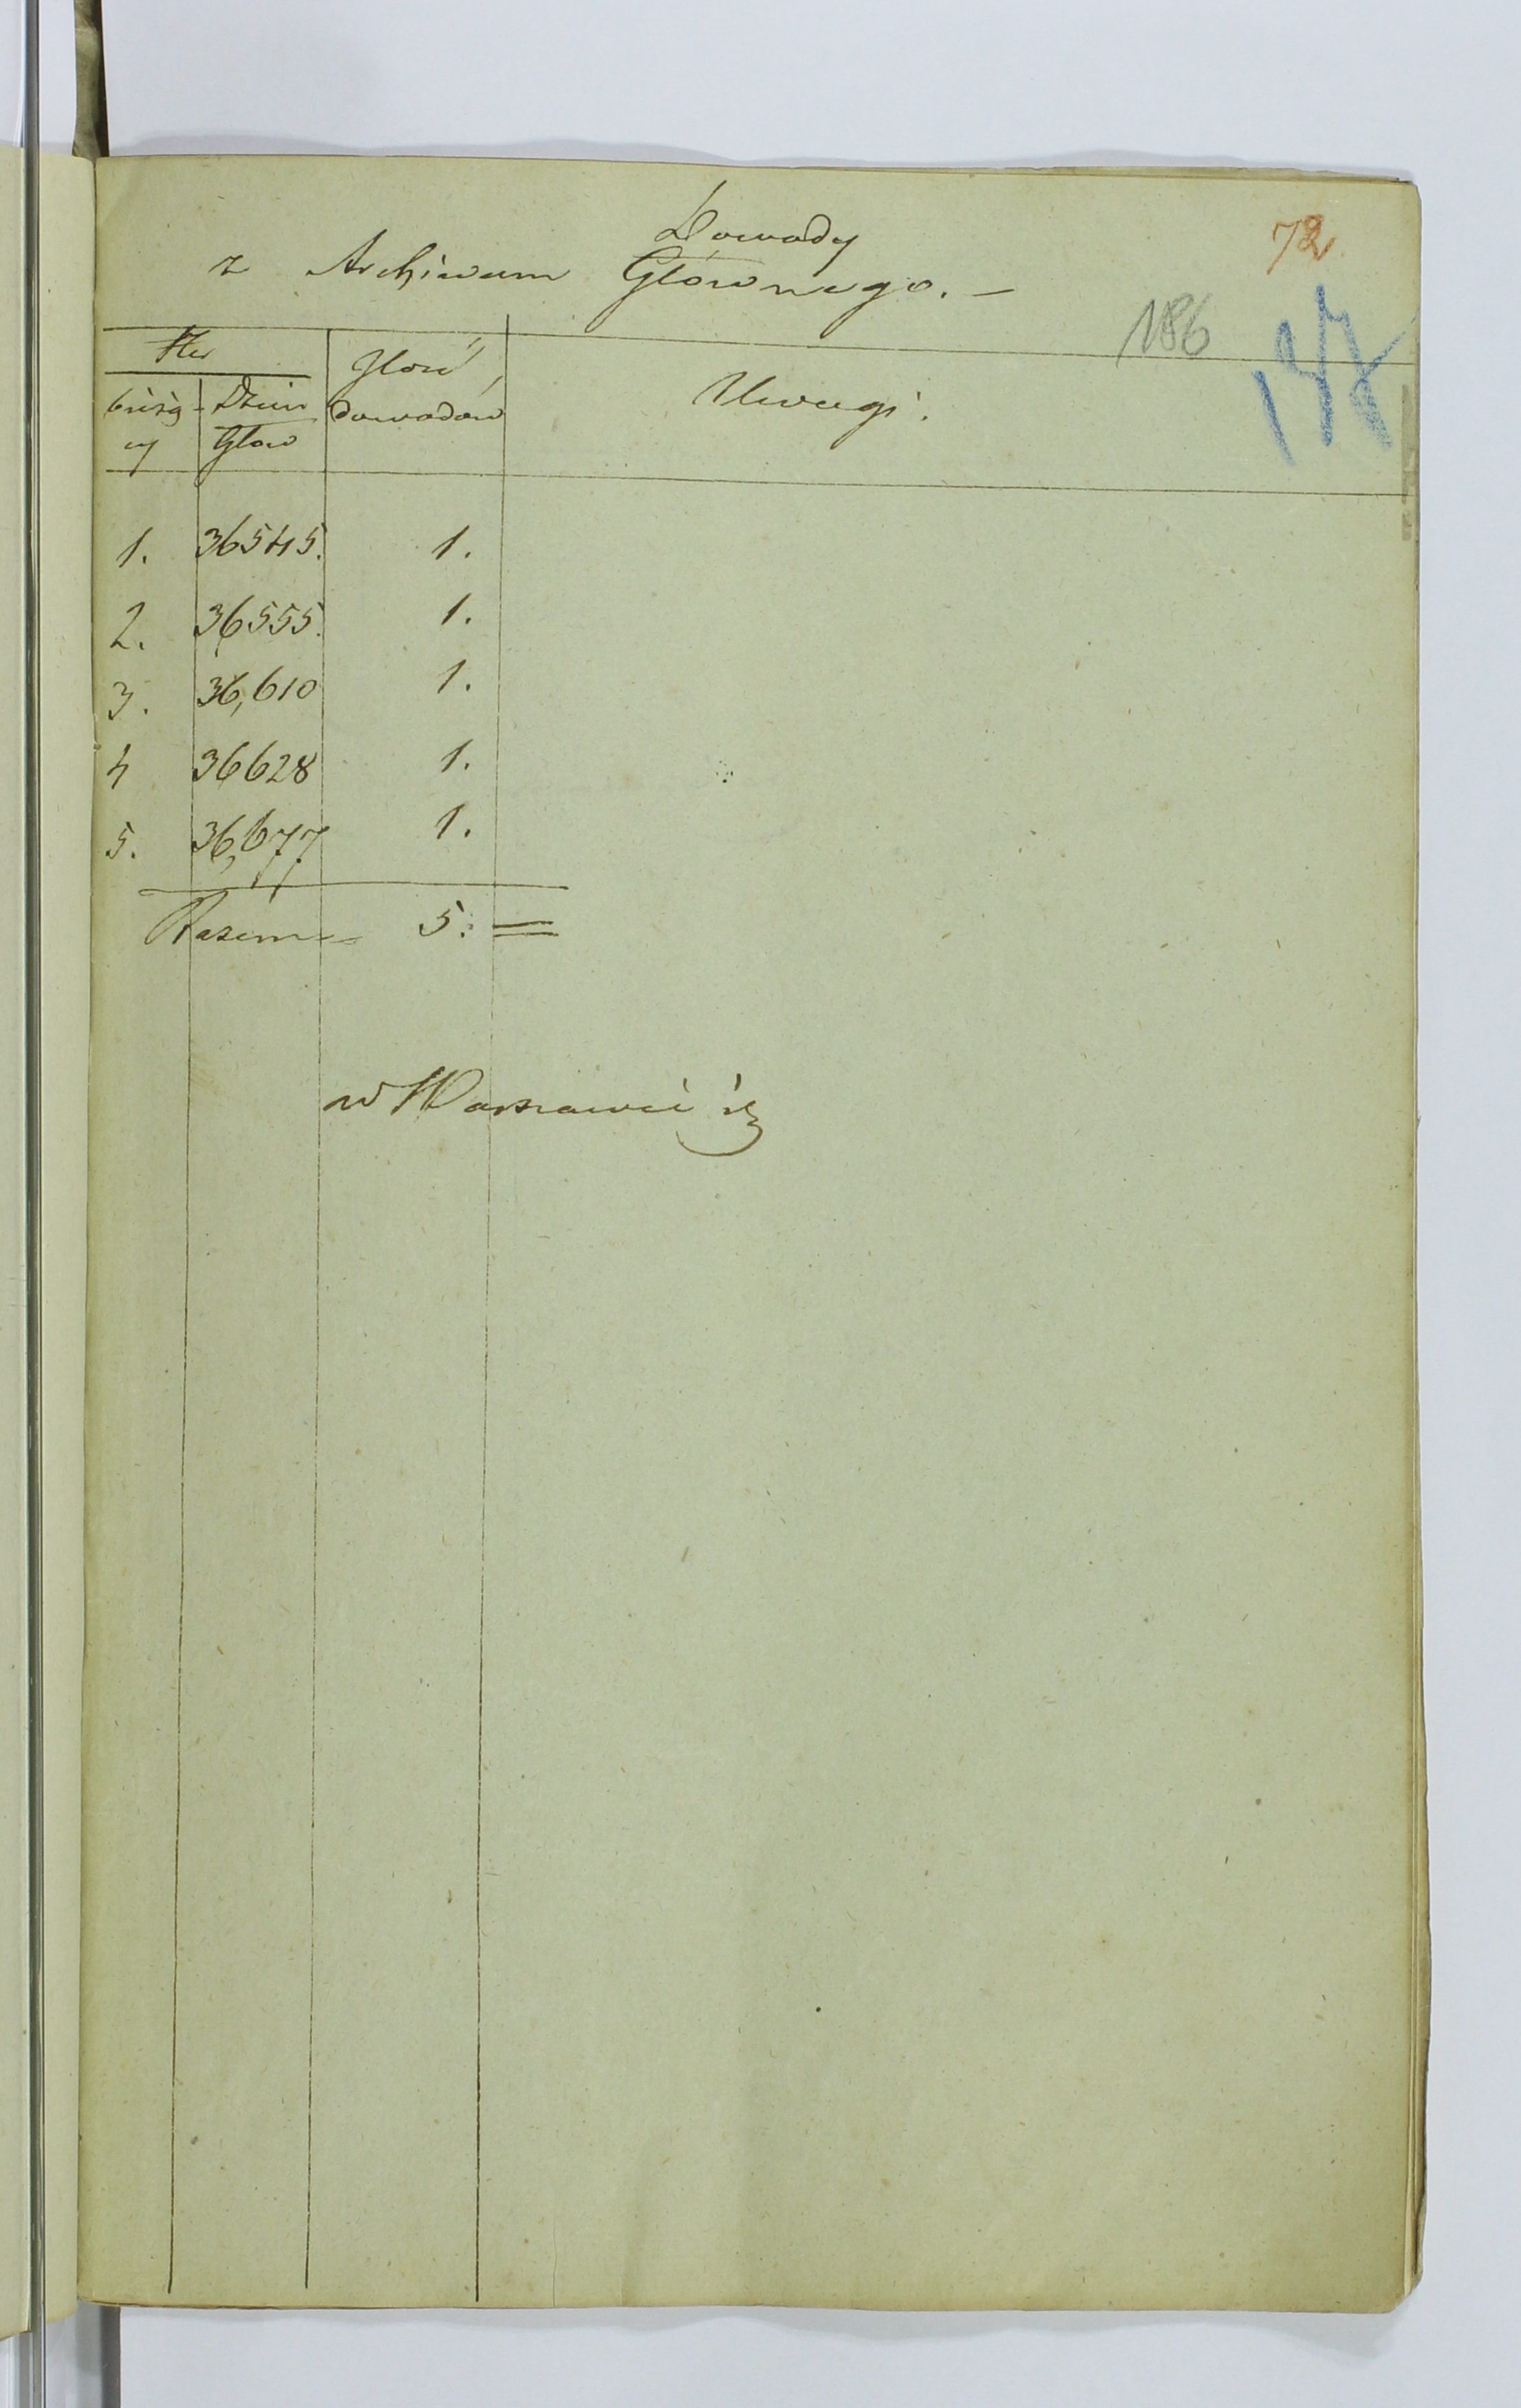 Dowody
z Archiwum Głównego. –
72
186
147
Nr Ilość
bieżą- Dzien dowodów Uwagi.
cy Głow
1. 36545. 1.
2. 36555. 1.
3. 36,610 1.
4 36628 1.
5. 36,677 1.
Razem 5. =
w Warszawie